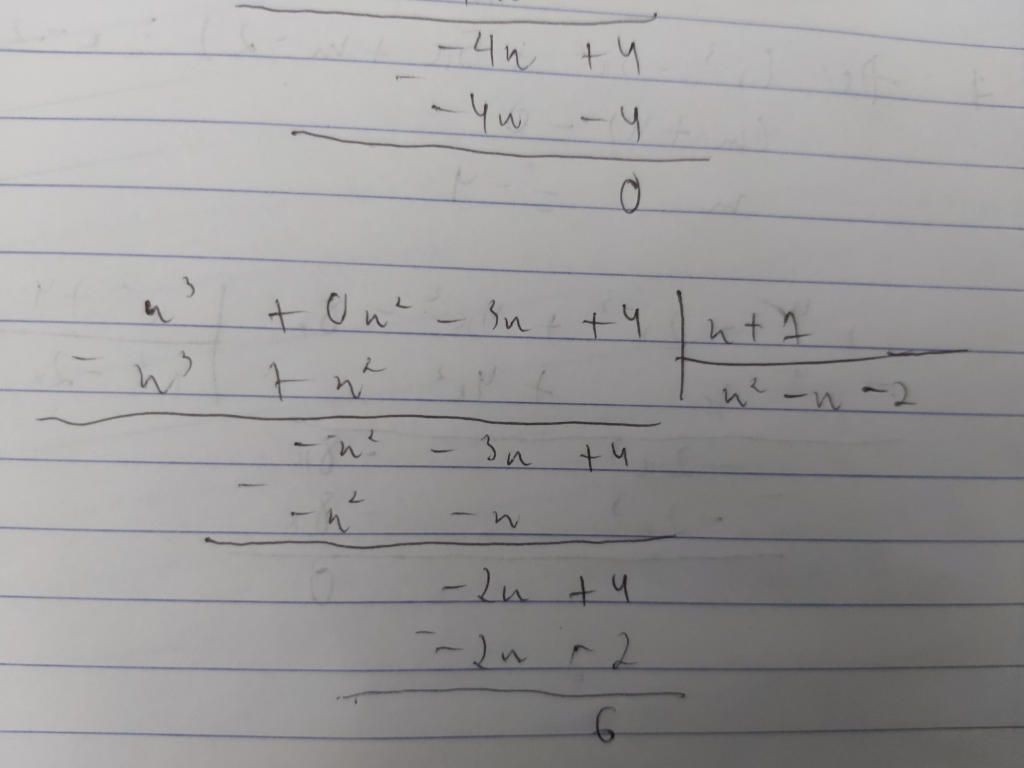 -4n +4
- -4n -4
0
n³ + 0n² - 3n +4 | n + 1
- n³ + n² | n² - n - 2
-n² - 3n +4
- -n² - n
-2n +4
- -2n - 2
6